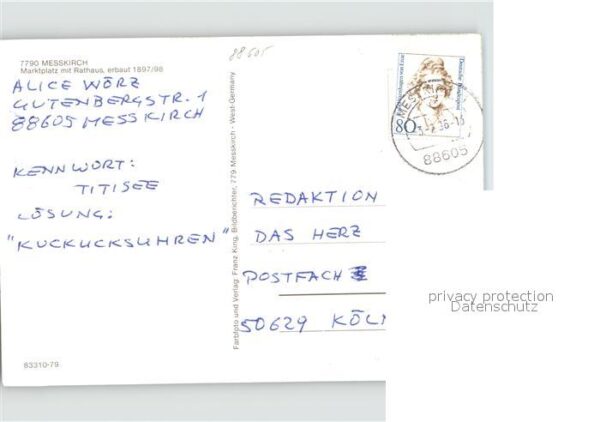 88605
7790 MESSKIRCH
Marktplatz mit Rathaus, erbaut 1897/98
ALICE WÖRZ
GUTENBERGSTR. 1
88605 MESSKIRCH
KENNWORT:
TITISEE
LÖSUNG:
"KUCKUCKSUHREN"
83310-79
Farbfoto und Verlag: Franz King, Bildberichter, 779 Messkirch - West-Germany
Deutsche Bundespost
80
MESS
88605
REDAKTION
DAS HERZ
POSTFACH
50629 KÖLN
privacy protection
Datenschutz